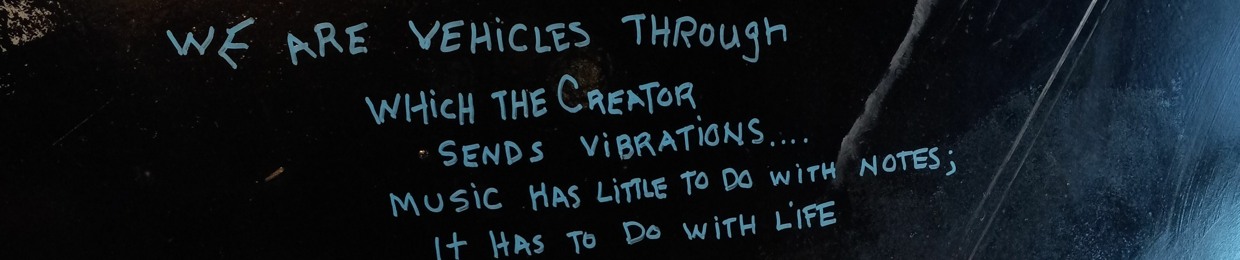 WE ARE VEHiCLES THRough
WHiCH THE CREATOR
SENDS ViBRATiONS....
MUSiC HAS LiTTLE TO DO WiTH NOTES;
It HAS TO Do WiTH LiFE